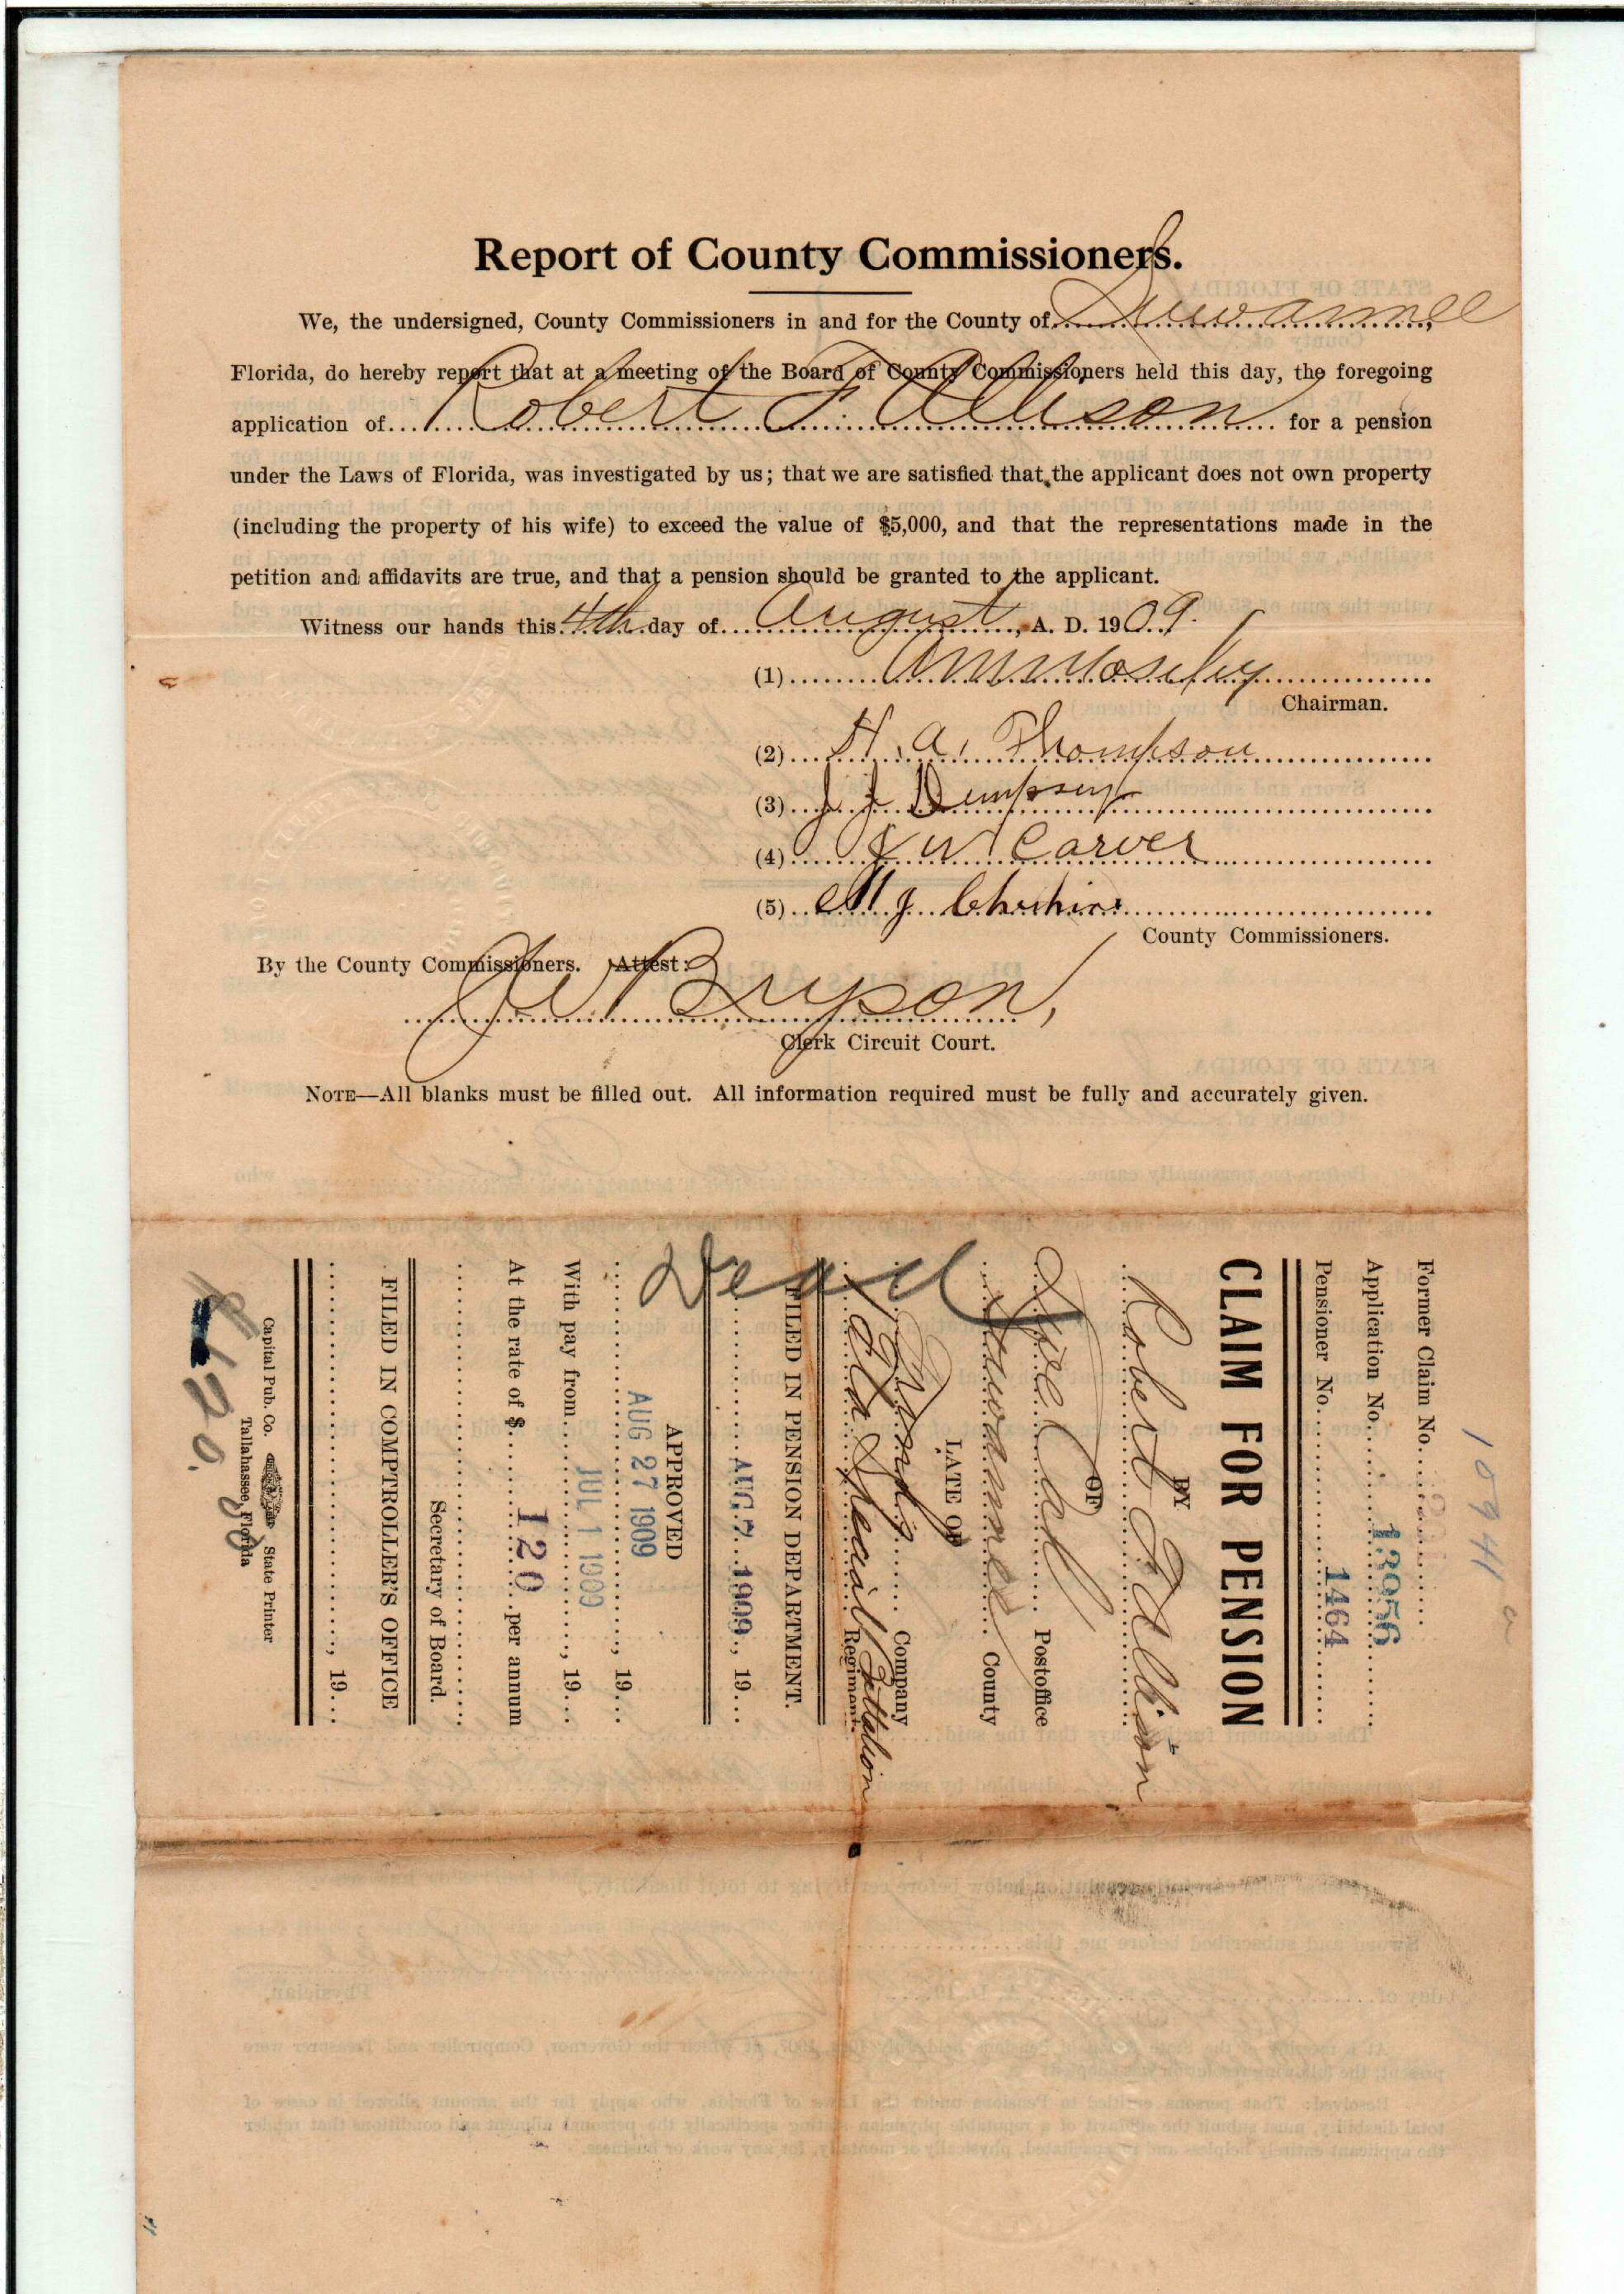 Report of County Commissioners.
We, the undersigned, County Commissioners in and for the County of Suwannee,
Florida, do hereby report that at a meeting of the Board of County Commissioners held this day, the foregoing
application of Robert F. Allison for a pension
under the Laws of Florida, was investigated by us; that we are satisfied that the applicant does not own property
(including the property of his wife) to exceed the value of $5,000, and that the representations made in the
petition and affidavits are true, and that a pension should be granted to the applicant.
Witness our hands this 4th day of August, A. D. 1909.
(1) Moseley
Chairman.
(2) H. A. Thompson
(3) J J Dempsey
(4) J W Carver
(5) M J Cheshire
County Commissioners.
By the County Commissioners. Attest:
J W Bryson,
Clerk Circuit Court.
NOTE—All blanks must be filled out. All information required must be fully and accurately given.
10941
Former Claim No.
Application No. 13956
Pensioner No. 1464
CLAIM FOR PENSION
BY
Robert F Allison
OF
Live Oak Postoffice
Suwannee County
LATE OF
Company
Regiment.
Battalion
FILED IN PENSION DEPARTMENT.
AUG 7 1909, 19
Dead
APPROVED
AUG 27 1909, 19
With pay from JUL 1 1909, 19
At the rate of $ 120 per annum
Secretary of Board.
FILED IN COMPTROLLER'S OFFICE
, 19
Capital Pub. Co. State Printer
Tallahassee, Florida